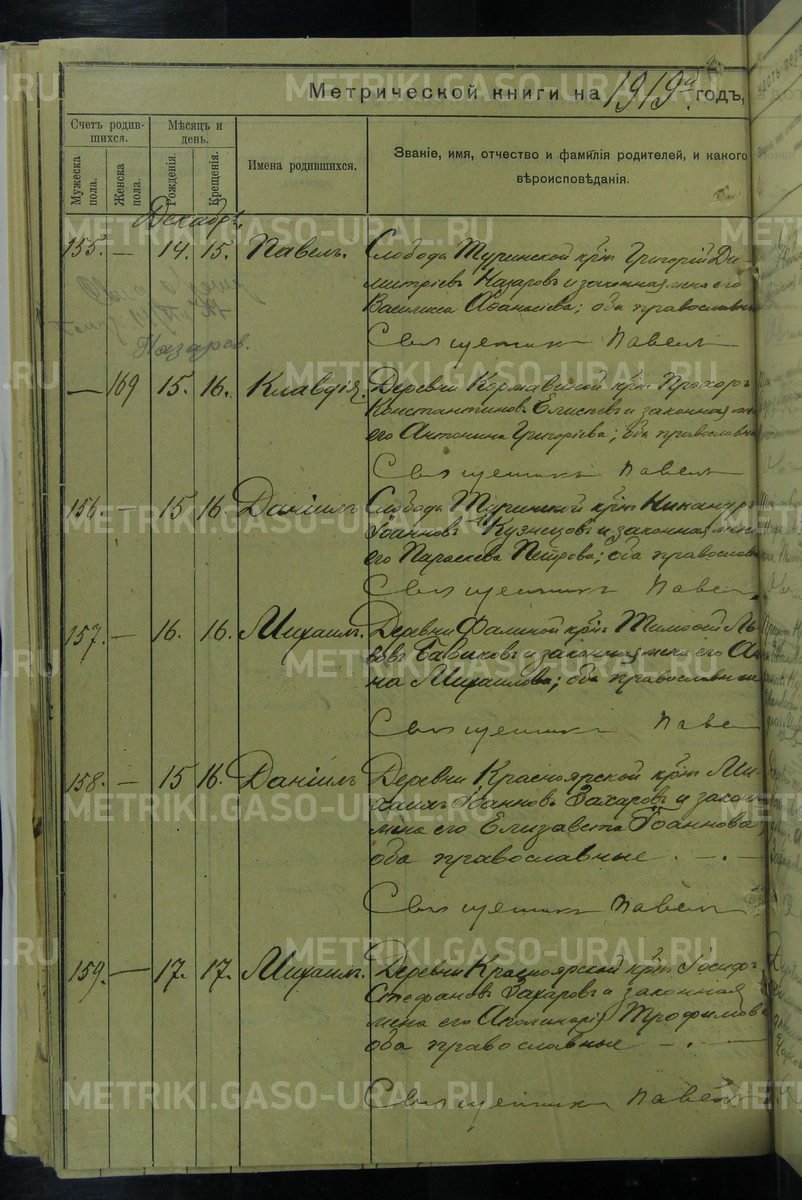 Метрической книги на 1919ый годъ,
Счетъ родившихся.
Мѣсяцъ и день.
Имена родившихся.
Званіе, имя, отчество и фамилія родителей, и какого вѣроисповѣданія.
Мужеска пола.
Женска пола.
Рожденія.
Крещенія.
Декабрь
155. — 14. 15. Павелъ. Слобода Туринской кр͠нъ Григорій Ди-
митріевъ Назаровъ и законная жена его
Василисса Аѳанасіева; оба православны
Назаров.
Священникъ Павелъ
— 169 15. 16. Клавдія. Деревни Кормавиной кр͠нъ Прохоръ
Константиновъ Елисѣевъ и законная жена
его Антонина Григоріева; оба православны
Священникъ Павелъ
156. — 15 16. Даніилъ Слобода Туринской кр͠нъ Никаноръ
Іоанновъ Кузнецовъ и законная жена
его Параскева Петрова; оба православн
Священникъ Павел
157. — 16. 16. Михаилъ. Деревни Фалиной кр͠нъ Тимоѳей Ль-
вовъ Бабиковъ и законная жена его Ан-
на Михаилова; оба православные
Священникъ Паве
158. — 15 16. Даніилъ Деревни Красноярской кр͠нъ Ми-
хаилъ Іоанновъ Захаровъ и закон
жена его Елизавета Іоаннова
оба православные . — . —
Священникъ Павелъ
159. — 17. 17. Михаилъ. Деревни Красноярской кр͠нъ Іосифъ
Стефановъ Захаровъ и законная
жена его Аполинарія Трофимов
оба православные — . —
Священникъ Павелъ
METRIKI.GASO-URAL.RU